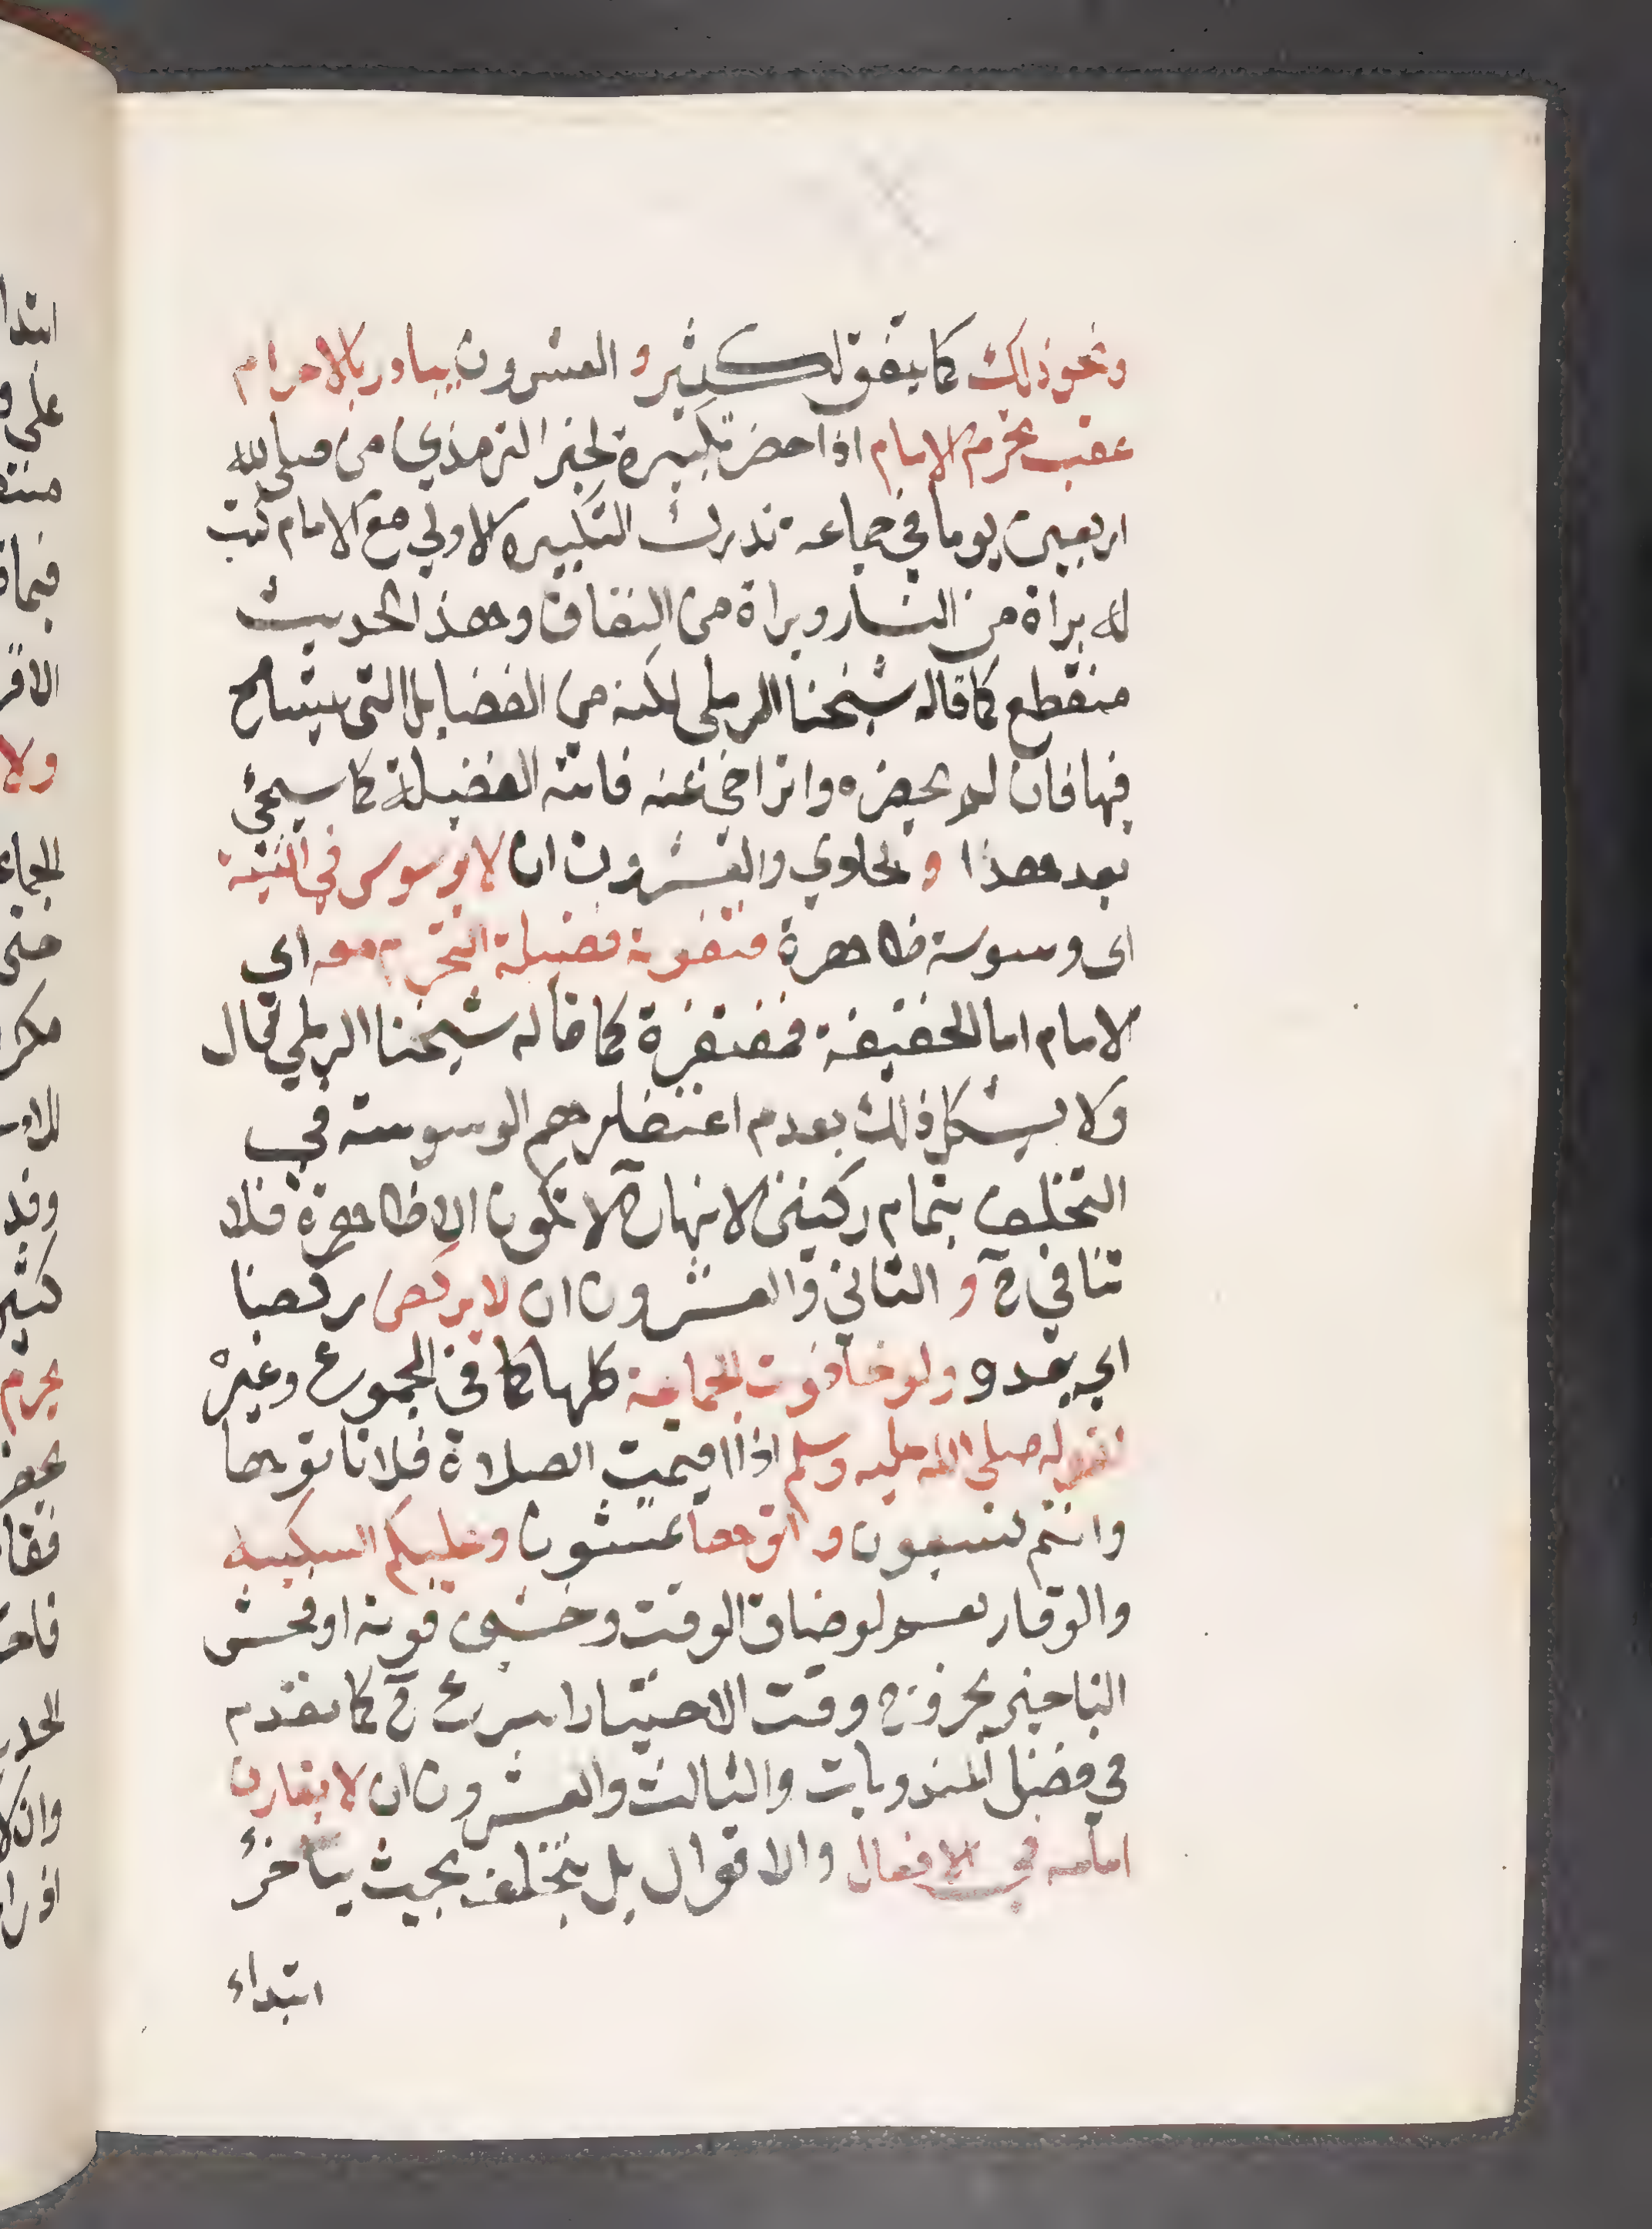 ونحو ذلك كما يتفق لكثير و العشرون يبادر بالاحرام
عقب تحرم الامام اذا حضر تكبيرة لخبر الترمذي من صلى لله
اربعين يوما في جماعة تدرك التكبيره الاولي مع الامام كتب
له براة من النار وبراة من النفاق وهذا الحديث
منقطع كما قاله شيخنا الرملي لكنه من الفضايل التي يتسامح
فيها فان لم يحضره وتراخي عنه فاتته الفضيلة كما سيجئ
بعد هذا و الحادي والعشرون ان لا يوسوس في النية
اى وسوسة ظاهرة فتفوته فضيلة التحرم معه اى
الامام اما الخفيفة فمغتفرة كما قاله شيخنا الرملي قال
ولا يشكل ذلك بعدم اغتفارهم الوسوسة في
التخلف بتمام ركنين لانها ح لا تكون الا ظاهرة فلا
تنافي ح و الثاني والعشرون ان لا يركض ركضا
اي يعدو ولو خاف فوت الجماعة كلها كما في المجموع وغيره
لقوله صلى الله عليه وسلم اذا اقيمت الصلاة فلا تاتوها
وانتم تسعون و اتوها تمشون وعليكم السكينه
والوقار نعم لو ضاق الوقت وخشى فوته او فحش
التاخير بخروج وقت الاختيار اسرع ح كما تقدم
في فضل المندوبات والثالث والعشرون ان لا يقارن
امامه في الافعال والاقوال بل يتخلف بحيث يتاخر
ابتداء